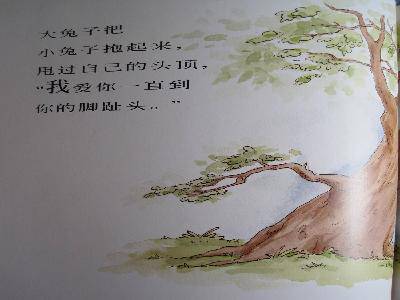 大兔子把
小兔子抱起来，
甩过自己的头顶，
“我爱你一直到
你的脚趾头..”